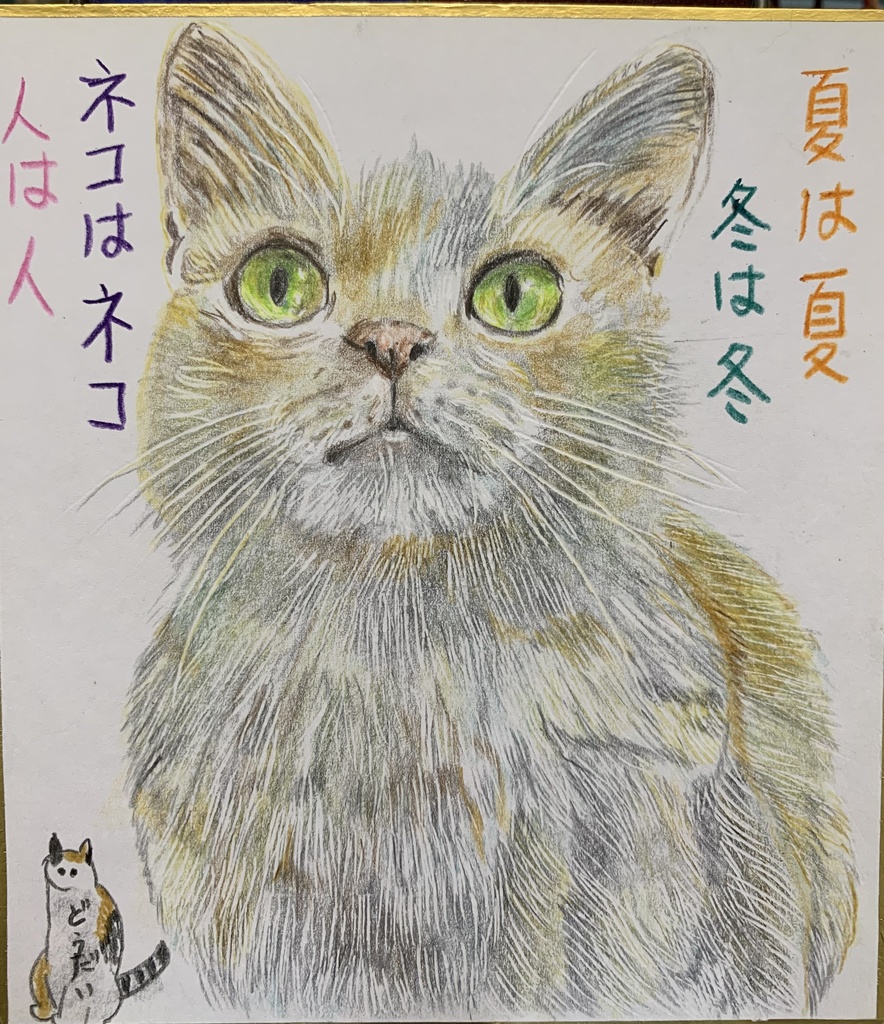 夏は夏
冬は冬
ネコはネコ
人は人
どうだい!